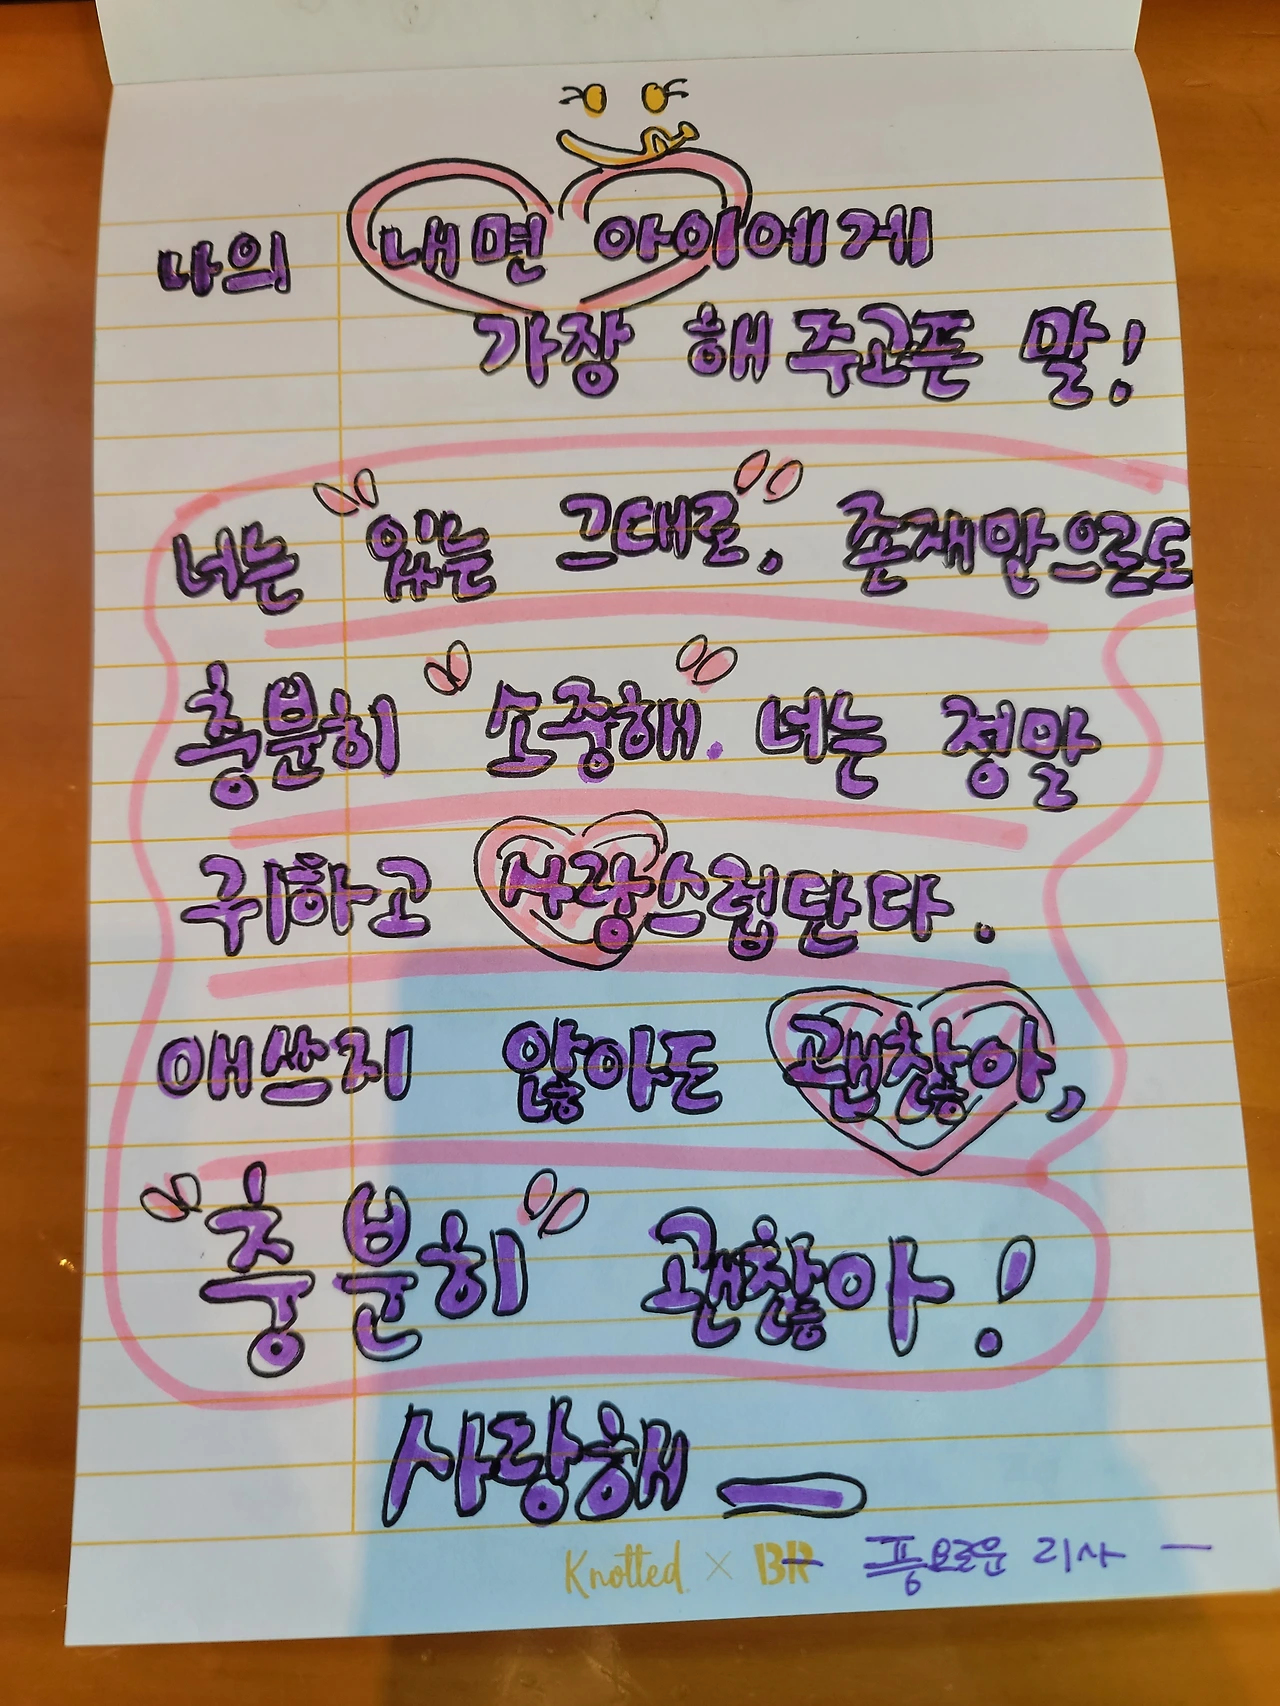 나의 내면 아이에게
가장 해주고픈 말!
너는 "있는 그대로", 존재만으로도
충분히 "소중해". 너는 정말
귀하고 사랑스럽단다.
애쓰지 않아도 괜찮아,
"충분히" 괜찮아!
사랑해
Knotted × BR
- 풍요로운 리사 -